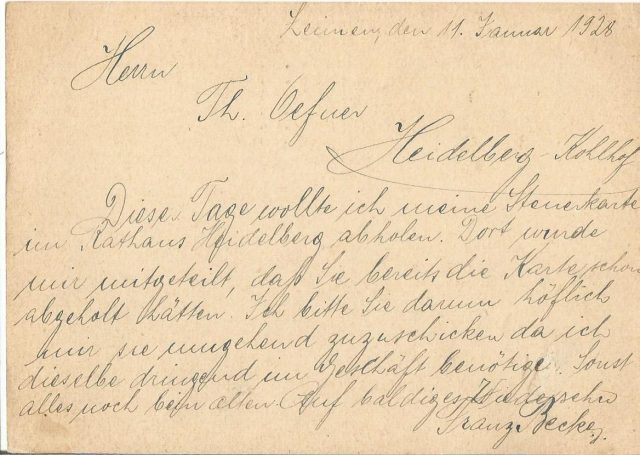 Leimen, den 11. Januar 1928
Herrn
Th. Oefner
Heidelberg-Kohlhof
Diese Tage wollte ich meine Steuerkarte
im Rathaus Heidelberg abholen. Dort wurde
mir mitgeteilt, daß Sie bereits die Karte schon
abgeholt hätten. Ich bitte Sie darum höflich
mir sie umgehend zuzuschicken da ich
dieselbe dringend im Geschäft benötige. Sonst
alles noch beim alten. Auf baldiges Wiedersehn
Franz Becker.